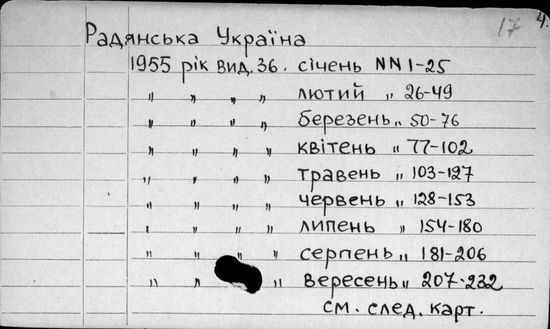 17 4.
Радянська Україна
1955 рік вид. 36. січень NN 1-25
" " " " лютий " 26-49
" " " " березень " 50-76
" " " " квітень " 77-102
" " " " травень " 103-127
" " " " червень " 128-153
" " " " липень " 154-180
" " " " серпень " 181-206
" " " вересень " 207-232
см. след. карт.